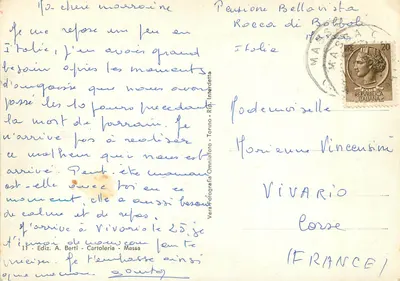 Ma chère marraine
Je me repose un peu en
Italie, j'en avais grand
besoin après les moments
d'angoisse que nous avons
passé les 10 jours précédant
la mort de parrain. Je
n'arrive pas à réaliser
ce malheur qui nous est
arrivé. Peut-être maman
est-elle avec toi en ce
moment, elle a aussi besoin
de calme et de repos.
J'arrive à Vivario le 25, je
precise. Je t'embrasse ainsi
que maman.
11 - Ediz. A. Berti - Cartoleria - Massa
Vera Fotografia
Pensione Bellavista
Rocca di
Italia
MASSA
Mademoiselle
Marienne Vincentini
VIVARIO
Corse
(FRANCE)